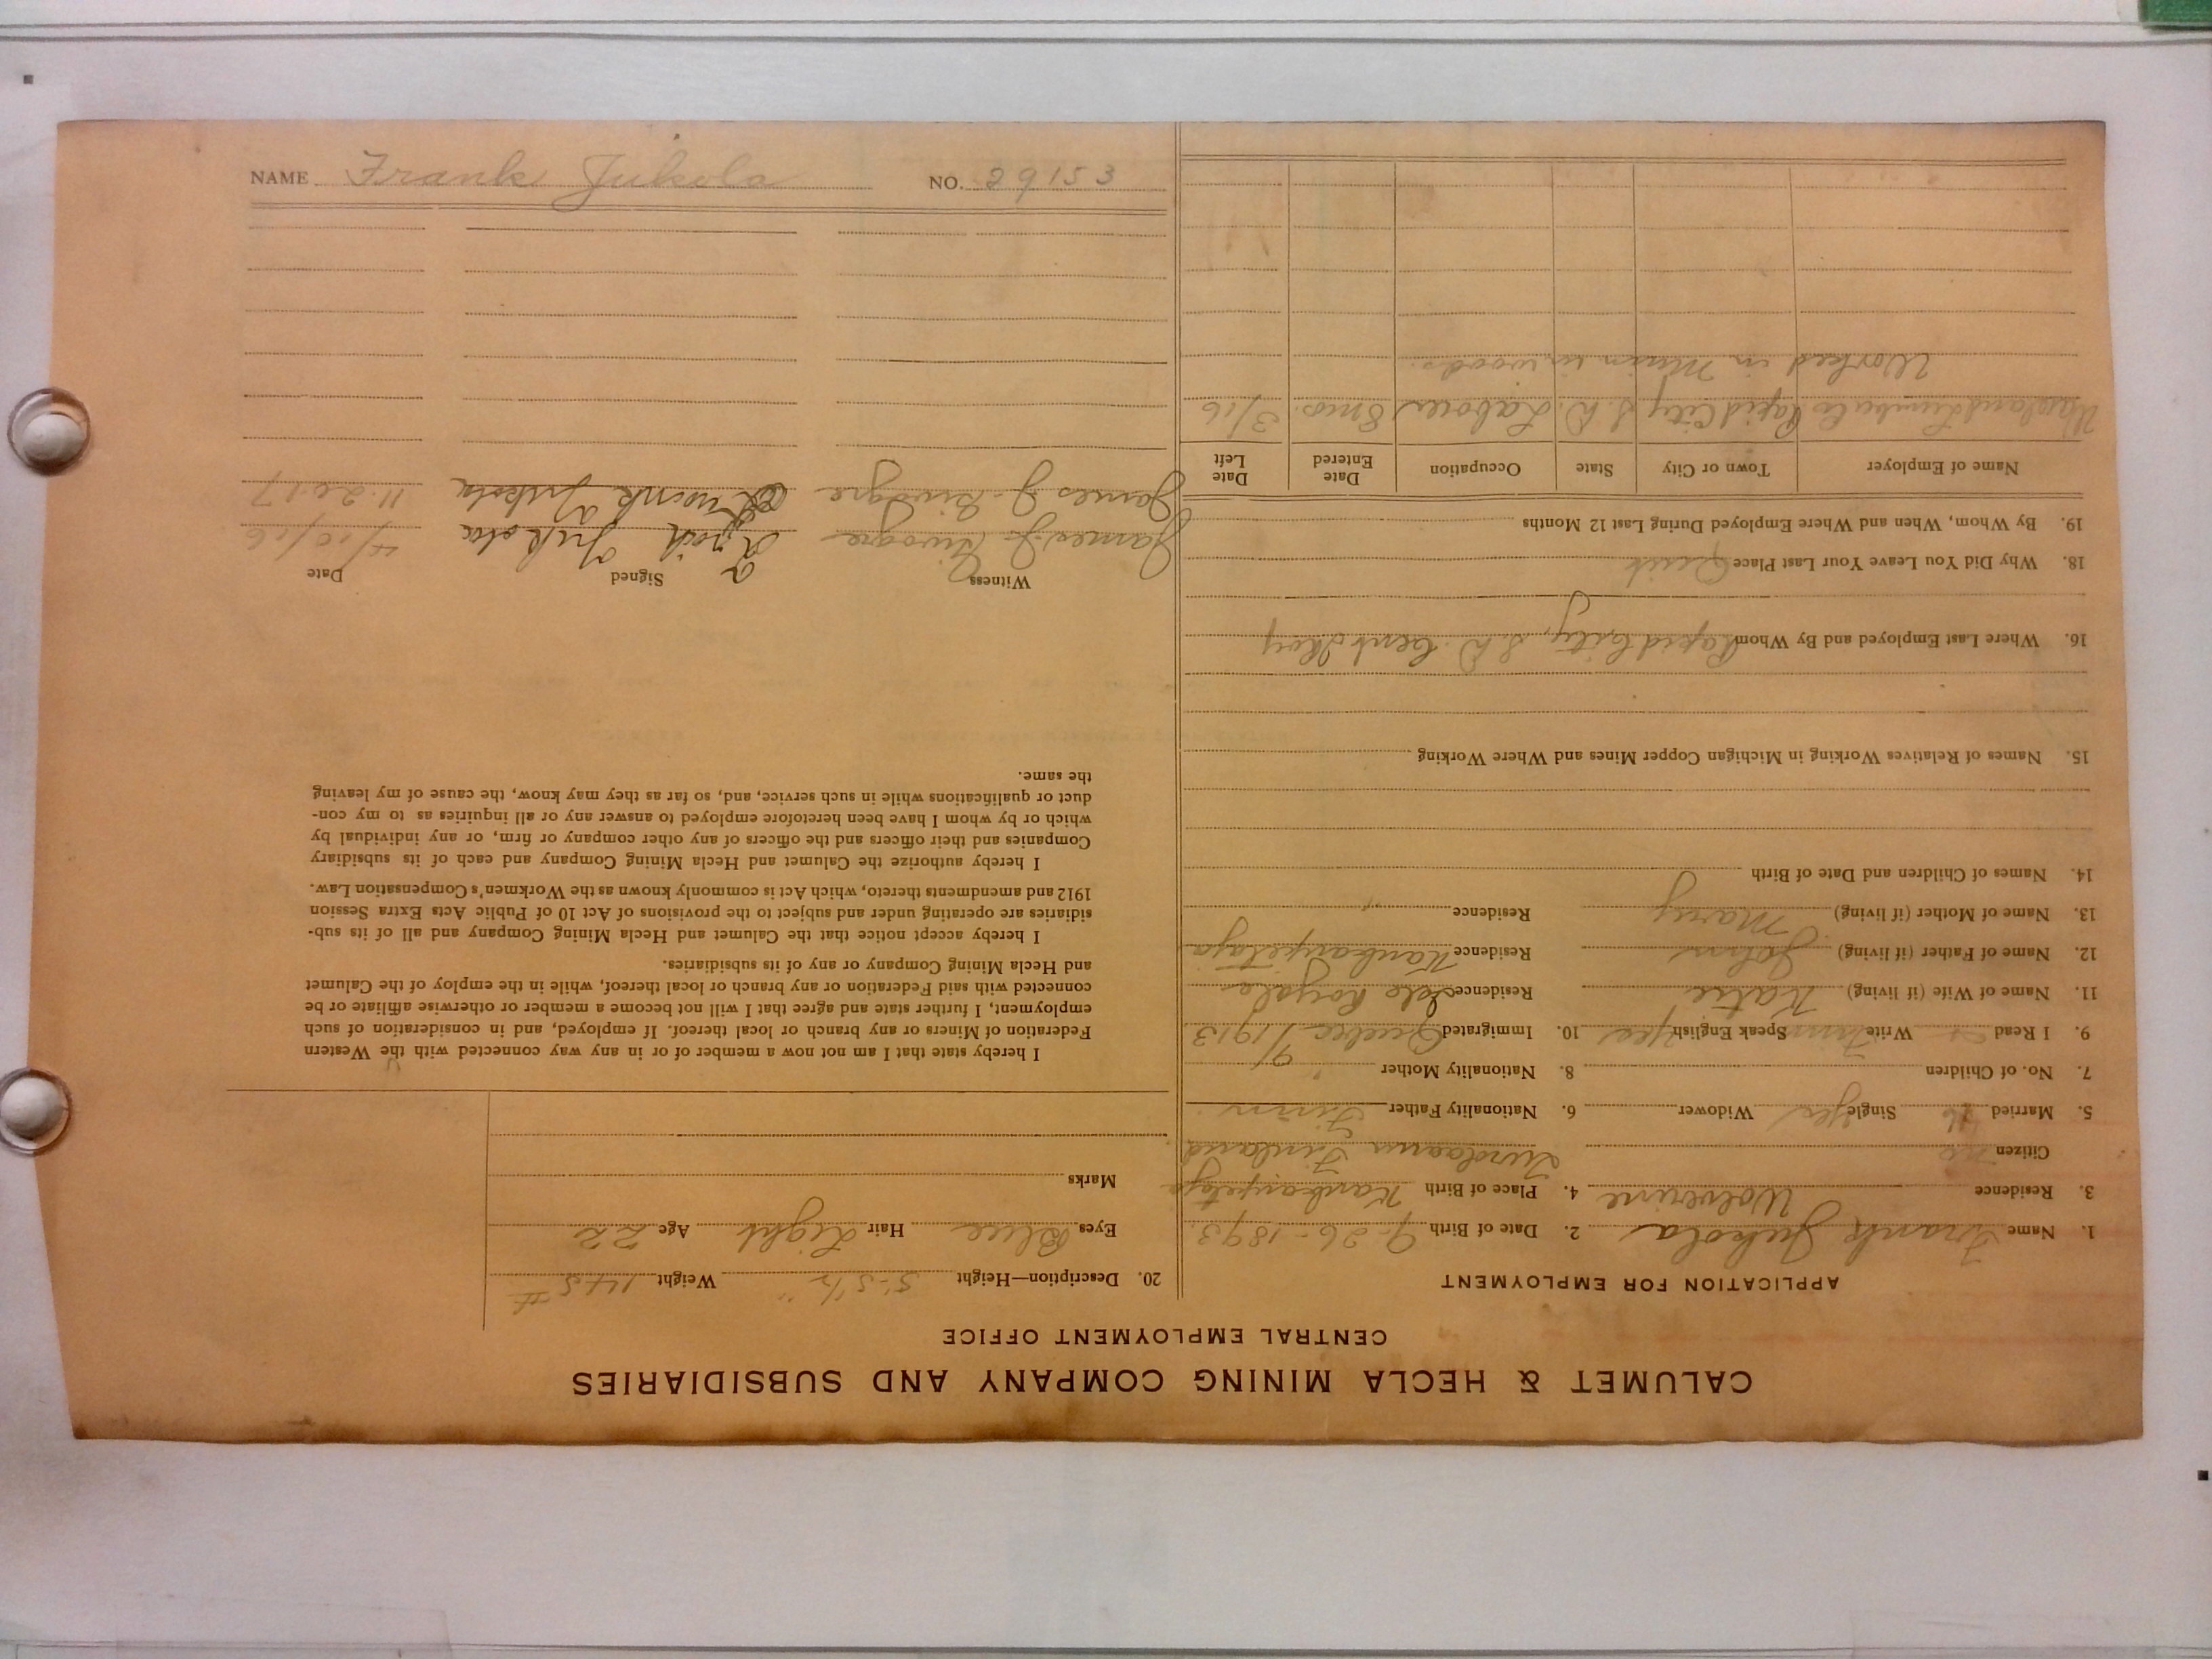 CALUMET & HECLA MINING COMPANY AND SUBSIDIARIES
CENTRAL EMPLOYMENT OFFICE
APPLICATION FOR EMPLOYMENT
1. Name Frank Jukola 2. Date of Birth 9-26-1893
3. Residence Wolverine 4. Place of Birth
Citizen no Finland
5. Married Single yes Widower 6. Nationality Father Finn
7. No. of Children 8. Nationality Mother "
9. I Read Write Finn Speak English yes 10. Immigrated Quebec 9/1913
11. Name of Wife (if living) Katie Residence Isle Royale
12. Name of Father (if living) John Residence
13. Name of Mother (if living) Mary Residence "
14. Names of Children and Date of Birth
15. Names of Relatives Working in Michigan Copper Mines and Where Working
16. Where Last Employed and By Whom Rapid City, S.D.
18. Why Did You Leave Your Last Place Quit
19. By Whom, When and Where Employed During Last 12 Months
Name of Employer Town or City State Occupation Date Entered Date Left
Rapid City S.D. Laborer 8 mos. 3/16
Worked in Minn in woods.
20. Description—Height 5-5 1/2" Weight 145#
Eyes Blue Hair Light Age 22
Marks
I hereby state that I am not now a member of or in any way connected with the Western
Federation of Miners or any branch or local thereof. If employed, and in consideration of such
employment, I further state and agree that I will not become a member or otherwise affiliate or be
connected with said Federation or any branch or local thereof, while in the employ of the Calumet
and Hecla Mining Company or any of its subsidiaries.
I hereby accept notice that the Calumet and Hecla Mining Company and all of its sub-
sidiaries are operating under and subject to the provisions of Act 10 of Public Acts Extra Session
1912 and amendments thereto, which Act is commonly known as the Workmen's Compensation Law.
I hereby authorize the Calumet and Hecla Mining Company and each of its subsidiary
Companies and their officers and the officers of any other company or firm, or any individual by
which or by whom I have been heretofore employed to answer any or all inquiries as to my con-
duct or qualifications while in such service, and, so far as they may know, the cause of my leaving
the same.
Witness Signed Date
James J. Jukola 4/10/16
James J. Jukola 11-20-17
NAME Frank Jukola NO. 29153